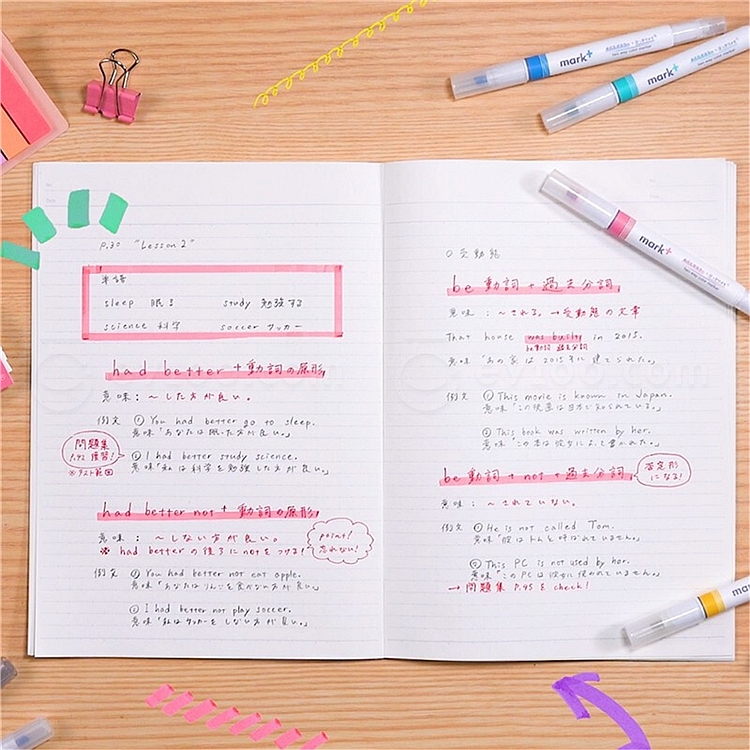 P.30 "Lesson 2"
単語
sleep 眠る study 勉強する
science 科学 soccer サッカー
had better + 動詞の原形
意味：〜した方が良い。
例文 ① You had better go to sleep.
意味「あなたは眠った方が良い。」
問題集
P.42 復習！
※テスト範囲
② I had better study science.
意味「私は科学を勉強した方が良い。」
had better not + 動詞の原形
意味：〜しない方が良い。
※ had betterの後ろにnotをつける！
point!
忘れない！
例文 ① You had better not eat apple.
意味「あなたはりんごを食べない方が良い。」
② I had better not play soccer.
意味「私はサッカーをしない方が良い。」
○ 受動態
be 動詞 + 過去分詞
意味：〜される。→受動態の文章
That house was built in 2015.
be動詞 過去分詞
意味「あの家は2015年に建てられた。」
例文 ① This movie is known in Japan.
意味「この映画は日本で知られている。」
② This book was written by her.
意味「この本は彼女によって書かれた。」
be 動詞 + not + 過去分詞
否定形
になる！
意味：〜されていない。
例文 ① He is not called Tom.
意味「彼はトムと呼ばれていません。」
② This PC is not used by her.
意味「このPCは彼女に使われていません。」
→ 問題集 P.45 を check!
mark+
two way color marker
mark+
two way color marker
mark+
two way color marker
mark